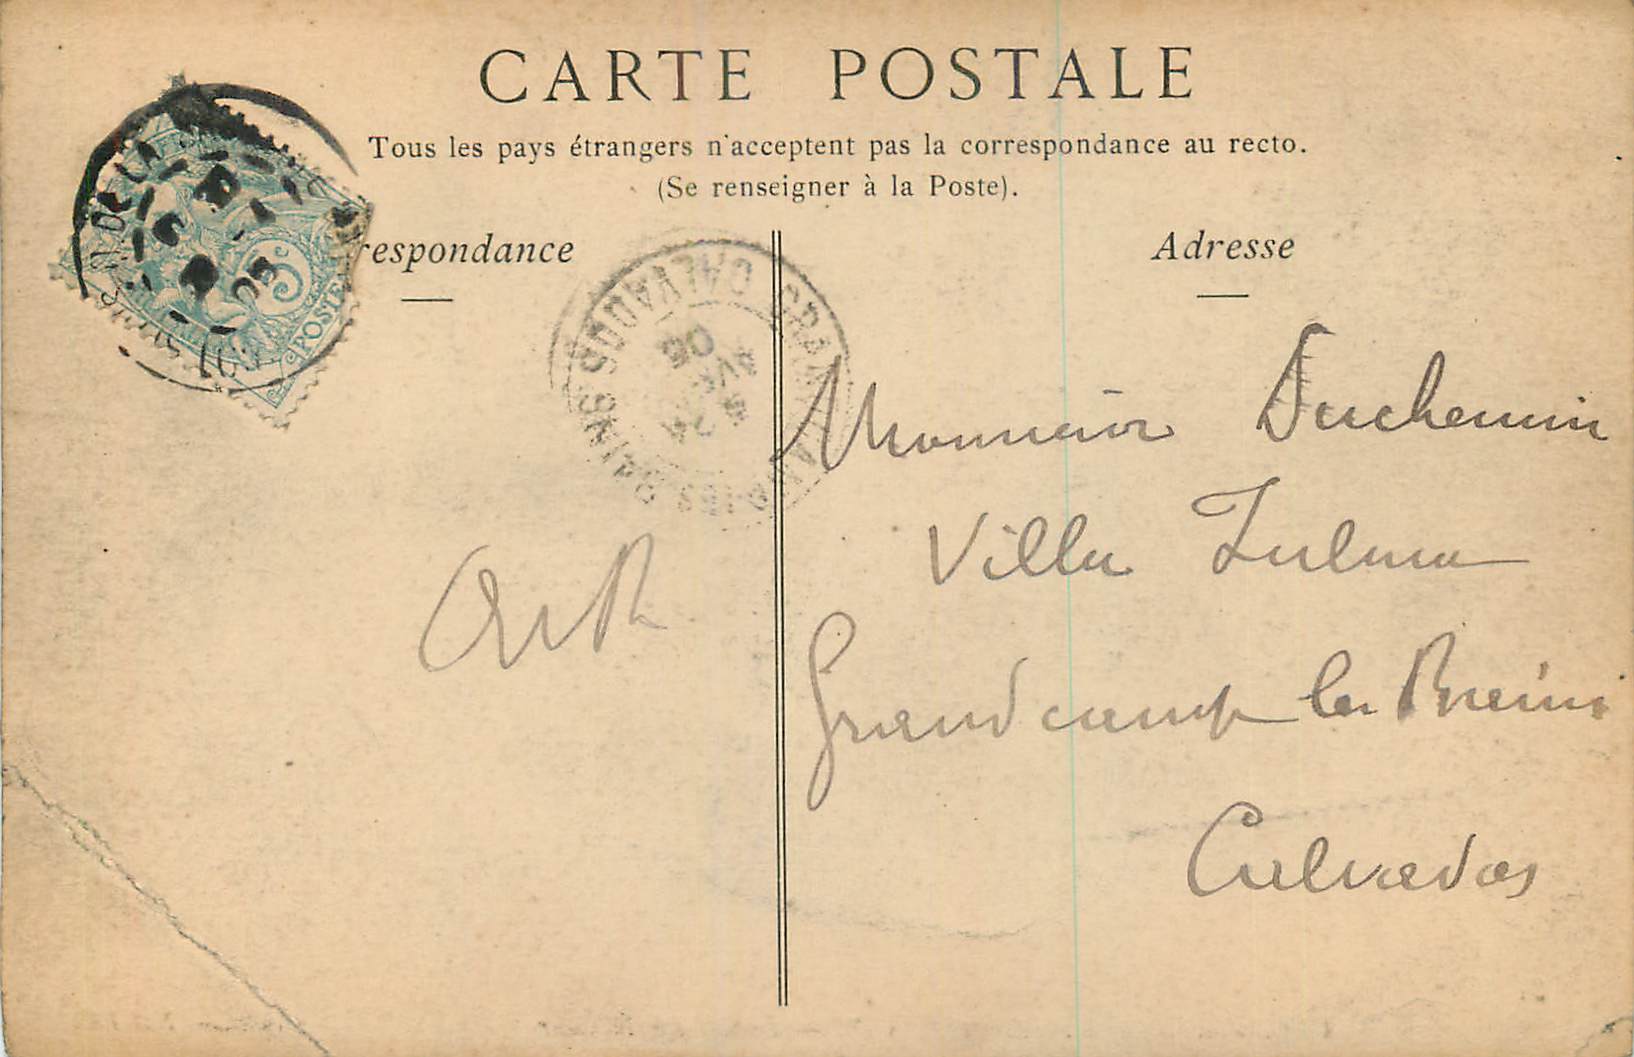 CARTE POSTALE
Tous les pays étrangers n'acceptent pas la correspondance au recto.
(Se renseigner à la Poste).
respondance
Adresse
5c
POSTE
GRANDCAMP-LES-BAINS CALVADOS
24
05
Monsieur Duchemin
Villa Zulma
Grandcamp les Bains
Calvados